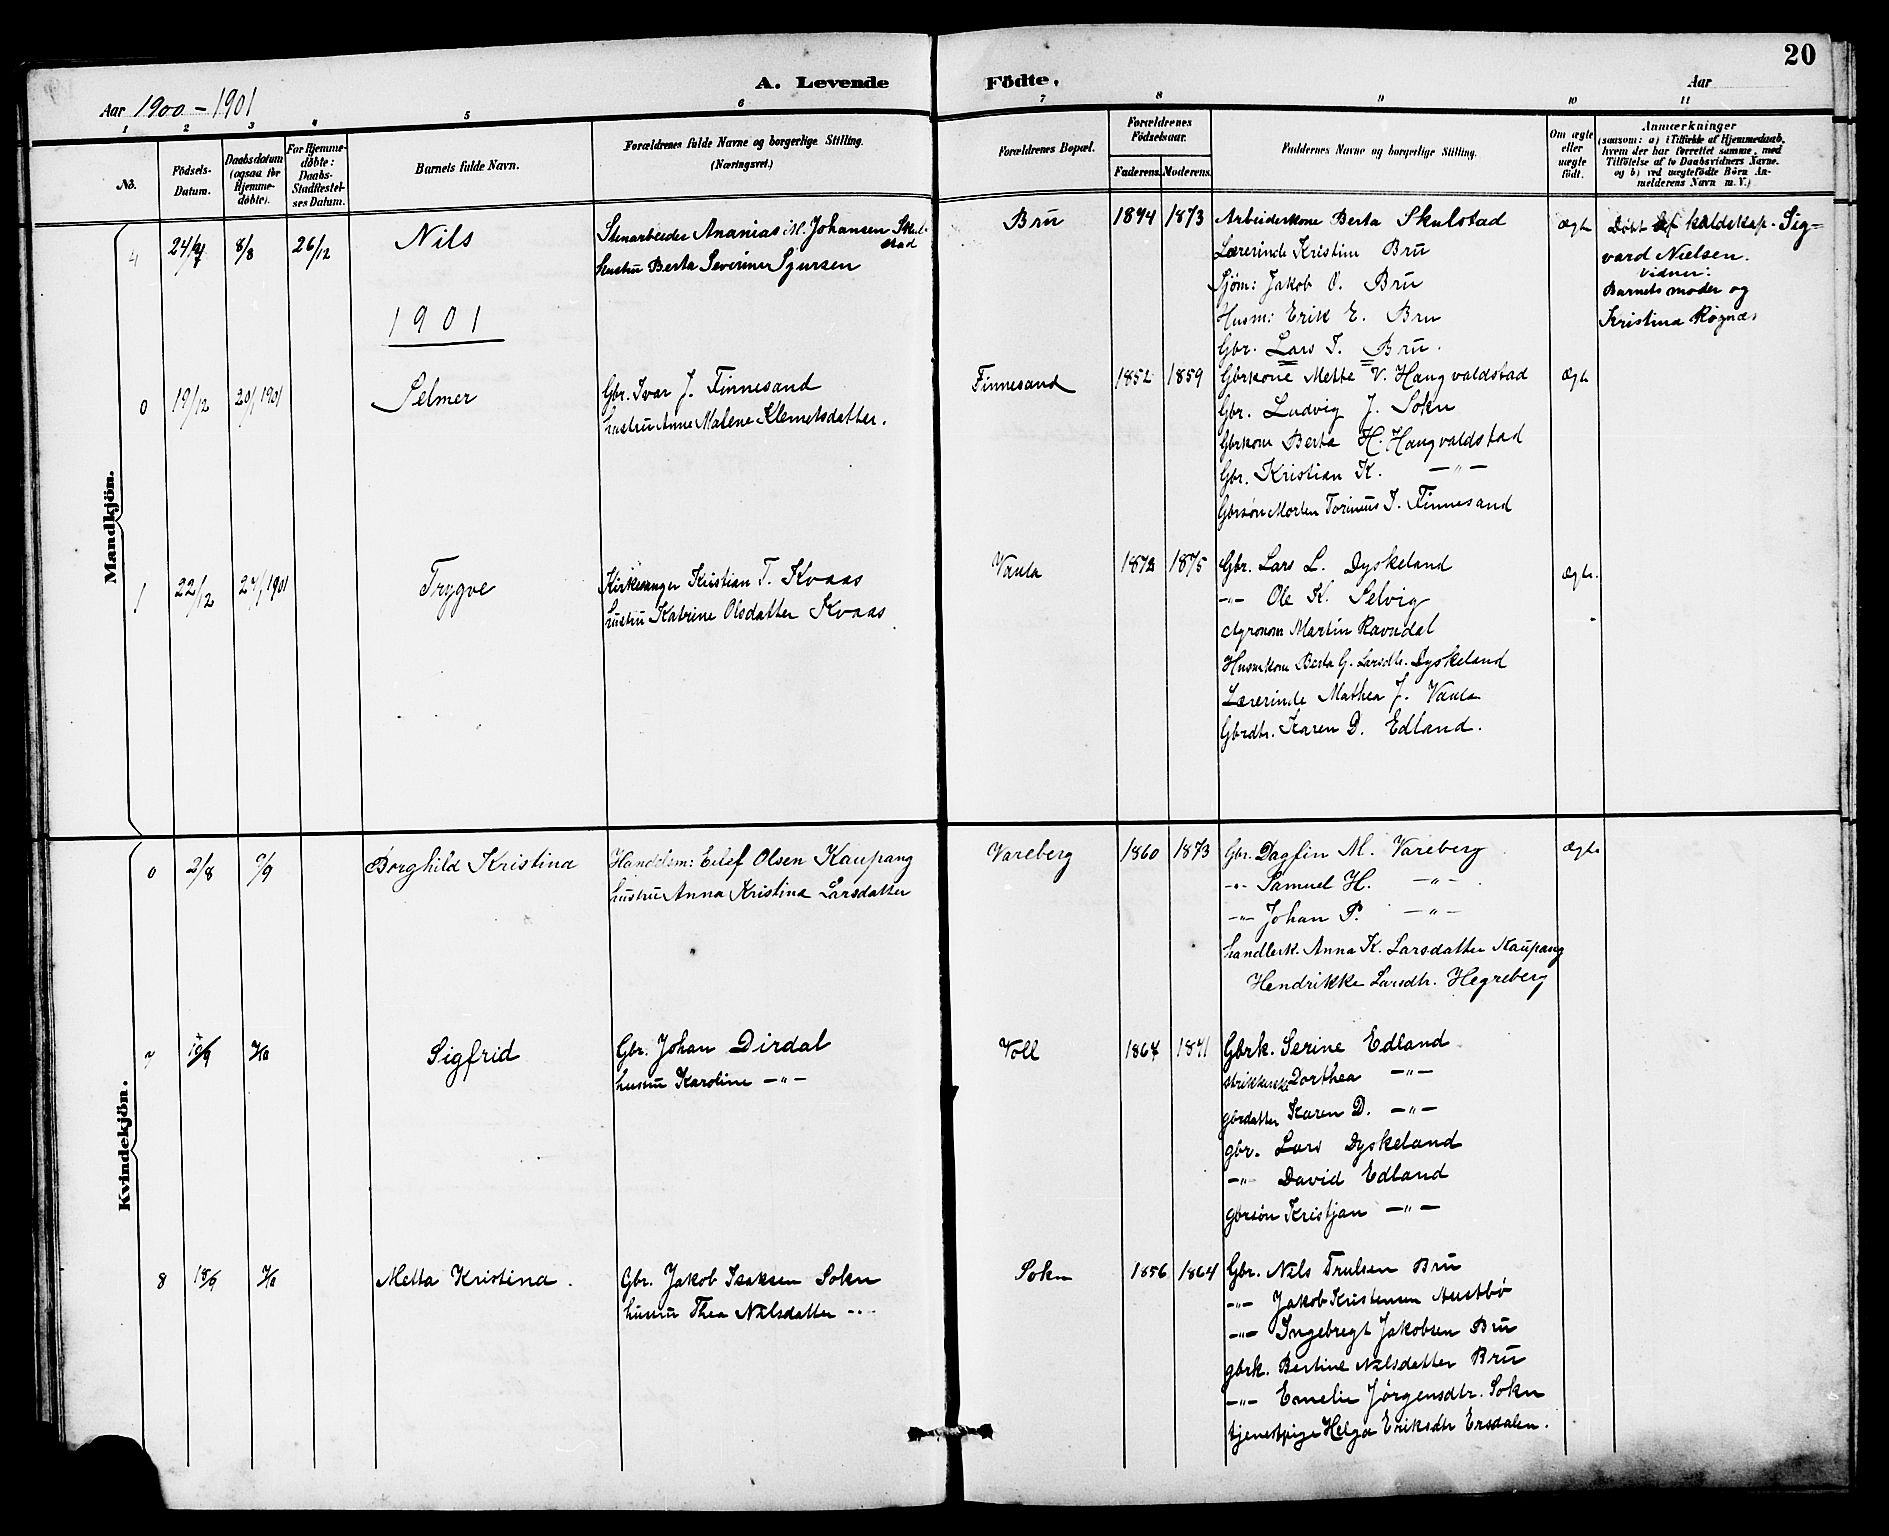 20
A. Levende Födte.
Aar 1900-1901
Aar
1 2 3 4 5 6 7 8 9 10 11
No.
Födsels-Datum.
Daabsdatum (ogsaa for Hjemme-döbte).
For Hjemme-döbte: Daabs-Stadfestel-ses Datum.
Barnets fulde Navn.
Forældrenes fulde Navne og borgerlige Stilling. (Næringsvei.)
Forældrenes Bopæl.
Forældrenes Födselsaar.
Faderens. Moderens.
Faddernes Navne og borgerlige Stilling.
Om ægte eller uægte födt.
Anmærkninger
(saasom: a) i Tilfælde af Hjemmedaab, hvem der har forrettet samme, med Tilföielse af to Daabsvidners Navne. og b) ved uægtefödte Börn An-melderens Navn m. V.)
Mandkjön.
4 8/8 26/12 Nils
Stenarbeider Ananias M. Johansen Skul-
stad
hustru Berta Severine Sjursen
Bru 1874 1873
Arbeiderkone Berta Skulstad
Lærerinde Kristine Bru
Sjöm: Jakob O. Bru
Husm: Erik E. Bru
Gbr. Lars T. Bru.
Ægte
Döbt af kaldskap. Sig=
vard Nielsen.
Vidner:
Barnets moder og
Kristina Rögnæs
1901
0 19/12 20/1 1901 Selmer
Gbr. Ivar J. Finnesand
hustru Anne Malene Klemetsdatter.
Finnesand 1852 1859
Gbrkone Mette V. Haugvaldstad
Gbr. Ludvig J. Sokn
Gbrkone Berta H. Haugvaldstad
Gbr. Kristian K. —"—
Gbrsön Morten Torinus I. Finnesand
Ægte
1 22/12 27/1 1901 Trygve
Kirkesanger Kristian T. Kvaas
hustru Katrine Olsdatter Kvaas
Vaula 1872 1875
Gbr. Lars L. Dyskeland
—"— Ole K. Selvig
Agronom Martin Ravndal
Husmkone Berta G. Larsdtr. Dyskeland
Lærerinde Mathea J. Vaula
Gbrdtr. Karen D. Edland.
Ægte.
Kvindekjön.
0 2/8 9/9 Borghild Kristina
Handelsm: Eilef Olsen Kaupang
hustru Anna Kristina Larsdatter
Vareberg 1860 1873
Gbr. Dagfin M. Vareberg
—"— Samuel H. —"—
—"— Johan P. —"—
handlerk. Anna K. Larsdatter Kaupang
Hendrikke Larsdtr. Hegreberg
Ægte
7 7/10 Sigfrid
Gbr. Johan Dirdal
hustru Karoline —"—
Voll 1864 1871
Gbrk. Serine Edland
Dorthea —"—
gbrdatter Karen D. —"—
gbr. Lars Dyskeland
—"— David Edland
gbrsön Kristjan —"—
8 18/9 7/10 Metta Kristina.
Gbr. Jakob Isaksen Sokn
hustru Thea Nilsdatter —"—
Sokn 1856 1864
Gbr. Nils Trulsen Bru
—"— Jakob Kristensen Austbö
—"— Ingebregt Jakobsen Bru
gbrk. Bertine Nilsdatter Bru
—"— Emelie Jörgensdtr. Sokn
tjenestpige Helga Eriksdtr Ersdalen.